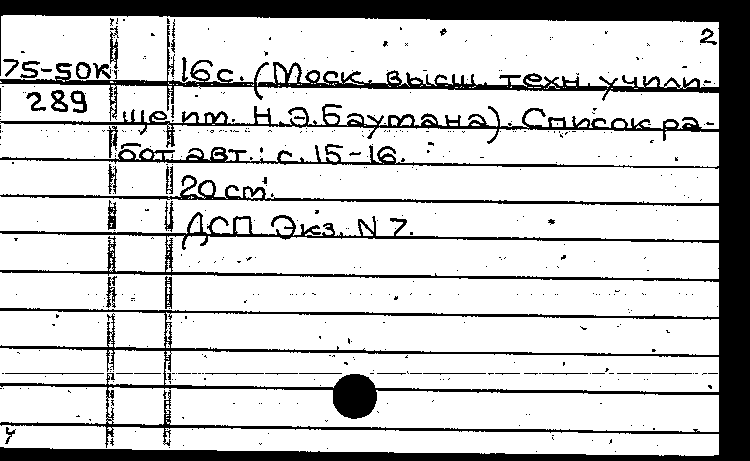 2
75-50к 16 с. (Моск. высш. техн. учили-
289 ще им. Н.Э.Баумана). Список ра-
бот авт.: с. 15-16.
20 см.
ДСП Экз. N 7.